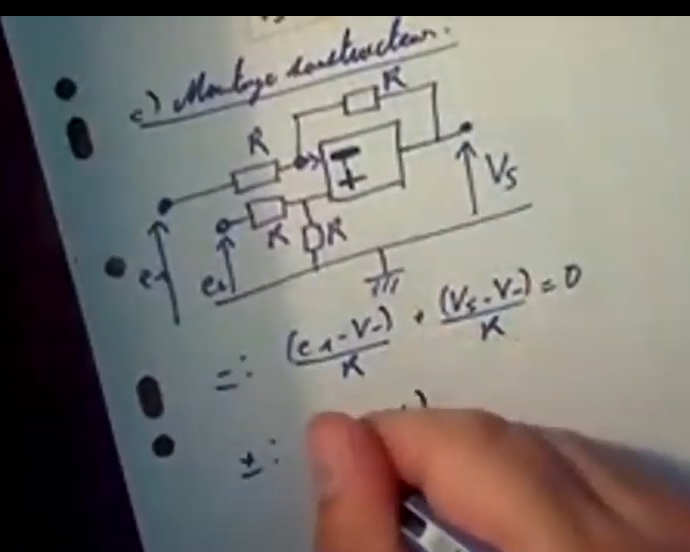 c) Montage soustracteur.
R
R
R
R
Vs
e1
e2
-: (e1-V-)/R + (Vs-V-)/R = 0
+: